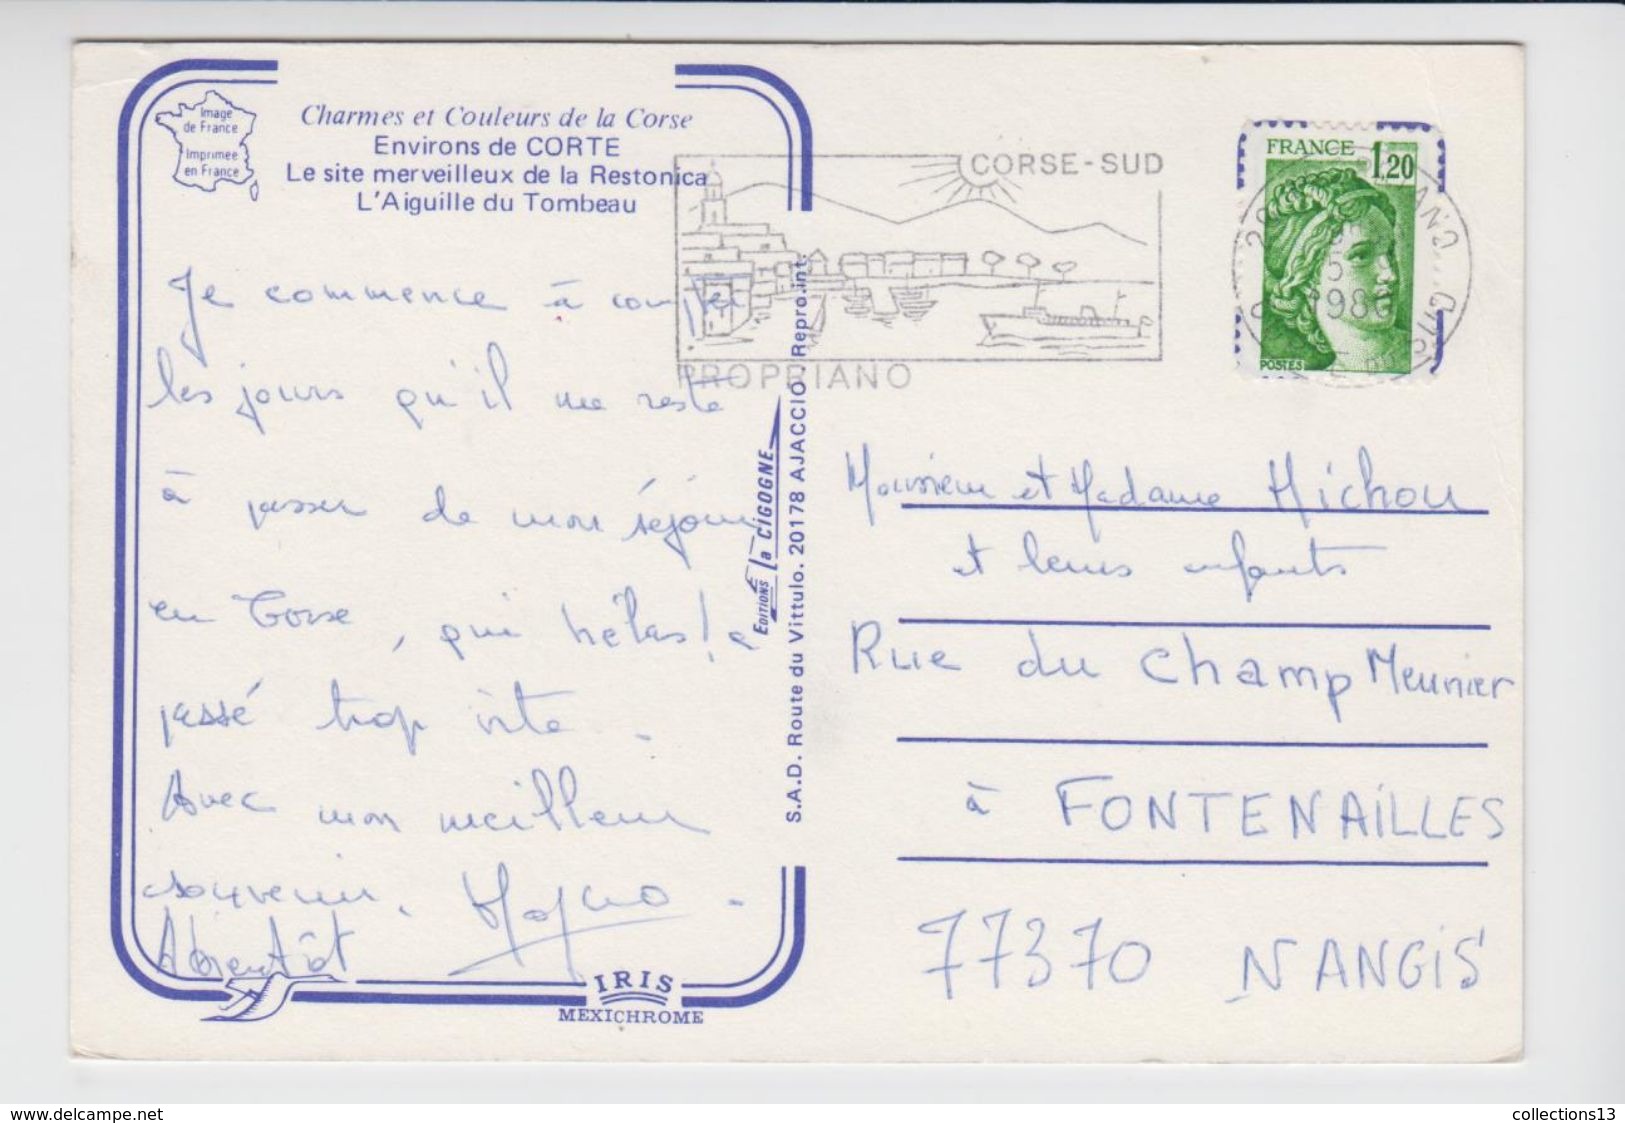 Image
de France
Imprimée
en France
Charmes et Couleurs de la Corse
Environs de CORTE
Le site merveilleux de la Restonica
L'Aiguille du Tombeau
CORSE-SUD
PROPRIANO
FRANCE 1,20
POSTES
Je commence à compter
les jours qu'il me reste
à passer de mon séjour
en Corse, qui hélas! a
passé trop vite.
Avec mon meilleur
souvenir.
A bientôt
EDITIONS la CIGOGNE
S.A.D. Route du Vittulo. 20178 AJACCIO Repro.int.
IRIS
MEXICHROME
Monsieur et Madame Michou
et leurs enfants
Rue du Champ Meunier
à FONTENAILLES
77370 NANGIS
www.delcampe.net
collections13